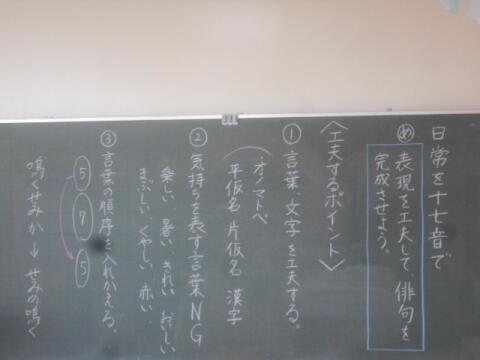 日常を十七音で
め 表現を工夫して、俳句を
完成させよう。
〈工夫するポイント〉
① 言葉、文字を工夫する。
オノマトペ
平仮名 片仮名 漢字
② 気持ちを表す言葉NG
楽しい 暑い きれい おいしい
まぶしい くやしい 赤い
③ 言葉の順序を入れかえる。
5 7 5
鳴くせみか → せみの鳴く